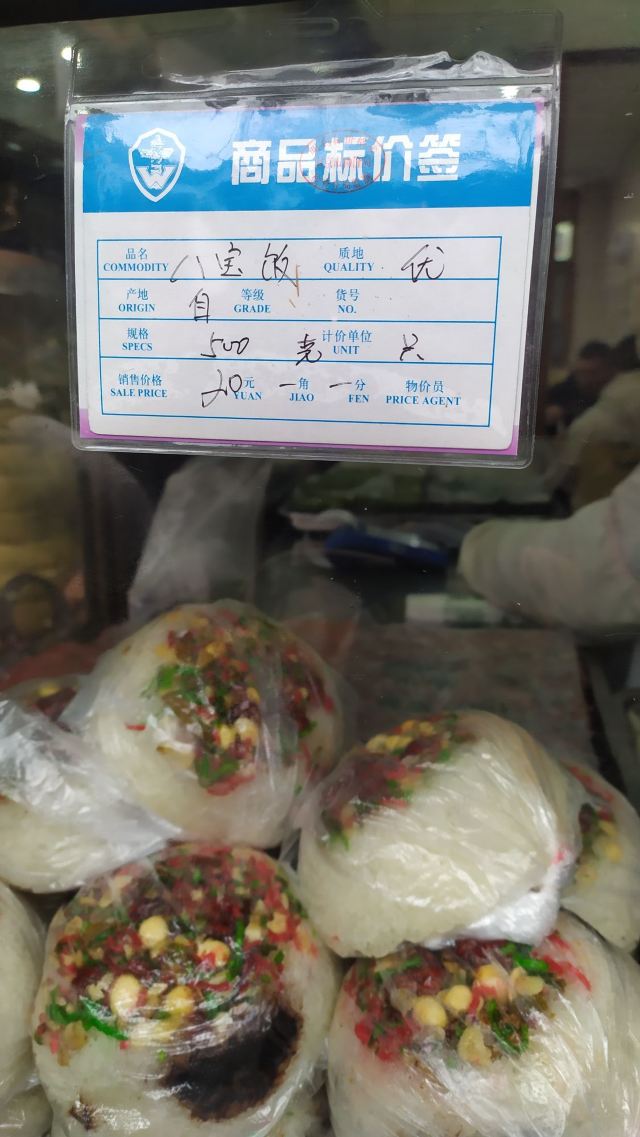 商品标价签
品名 八宝饭 质地 优
COMMODITY QUALITY
产地 自 等级 货号
ORIGIN GRADE NO.
规格 500 克 计价单位 只
SPECS UNIT
销售价格 20 元 一 角 一 分 物价员
SALE PRICE YUAN JIAO FEN PRICE AGENT